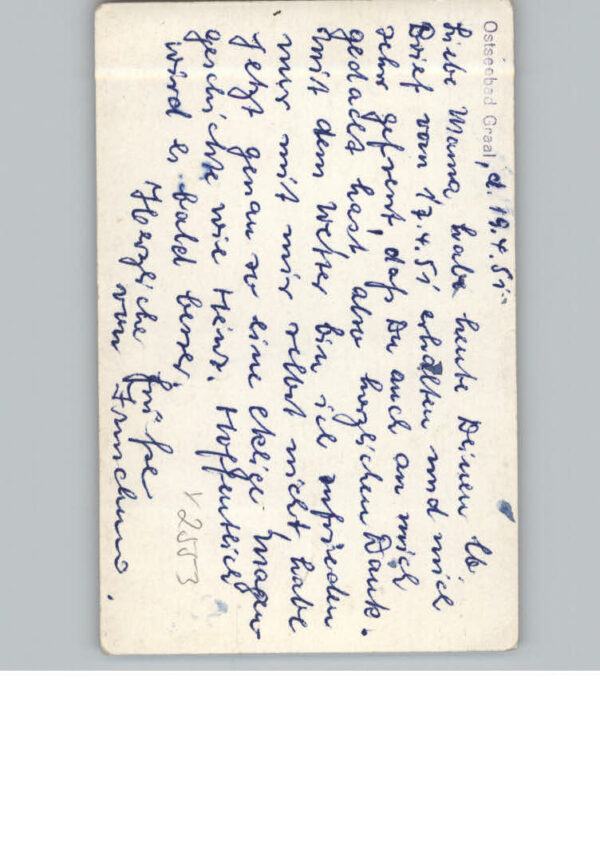 Ostseebad Graal, d. 19.4.51.
Liebe Mama, habe heute Deinen lb.
Brief vom 17.4.51 erhalten und mich
sehr gefreut, daß Du auch an mich
gedacht hast also herzlichen Dank.
Mit dem Wetter bin ich zufrieden
nur mit mir selbst nicht, habe
jetzt genau so eine eklige Magen-
geschichte wie Heinz. Hoffentlich
wird es bald besser.
Herzliche Grüße
von
V2553